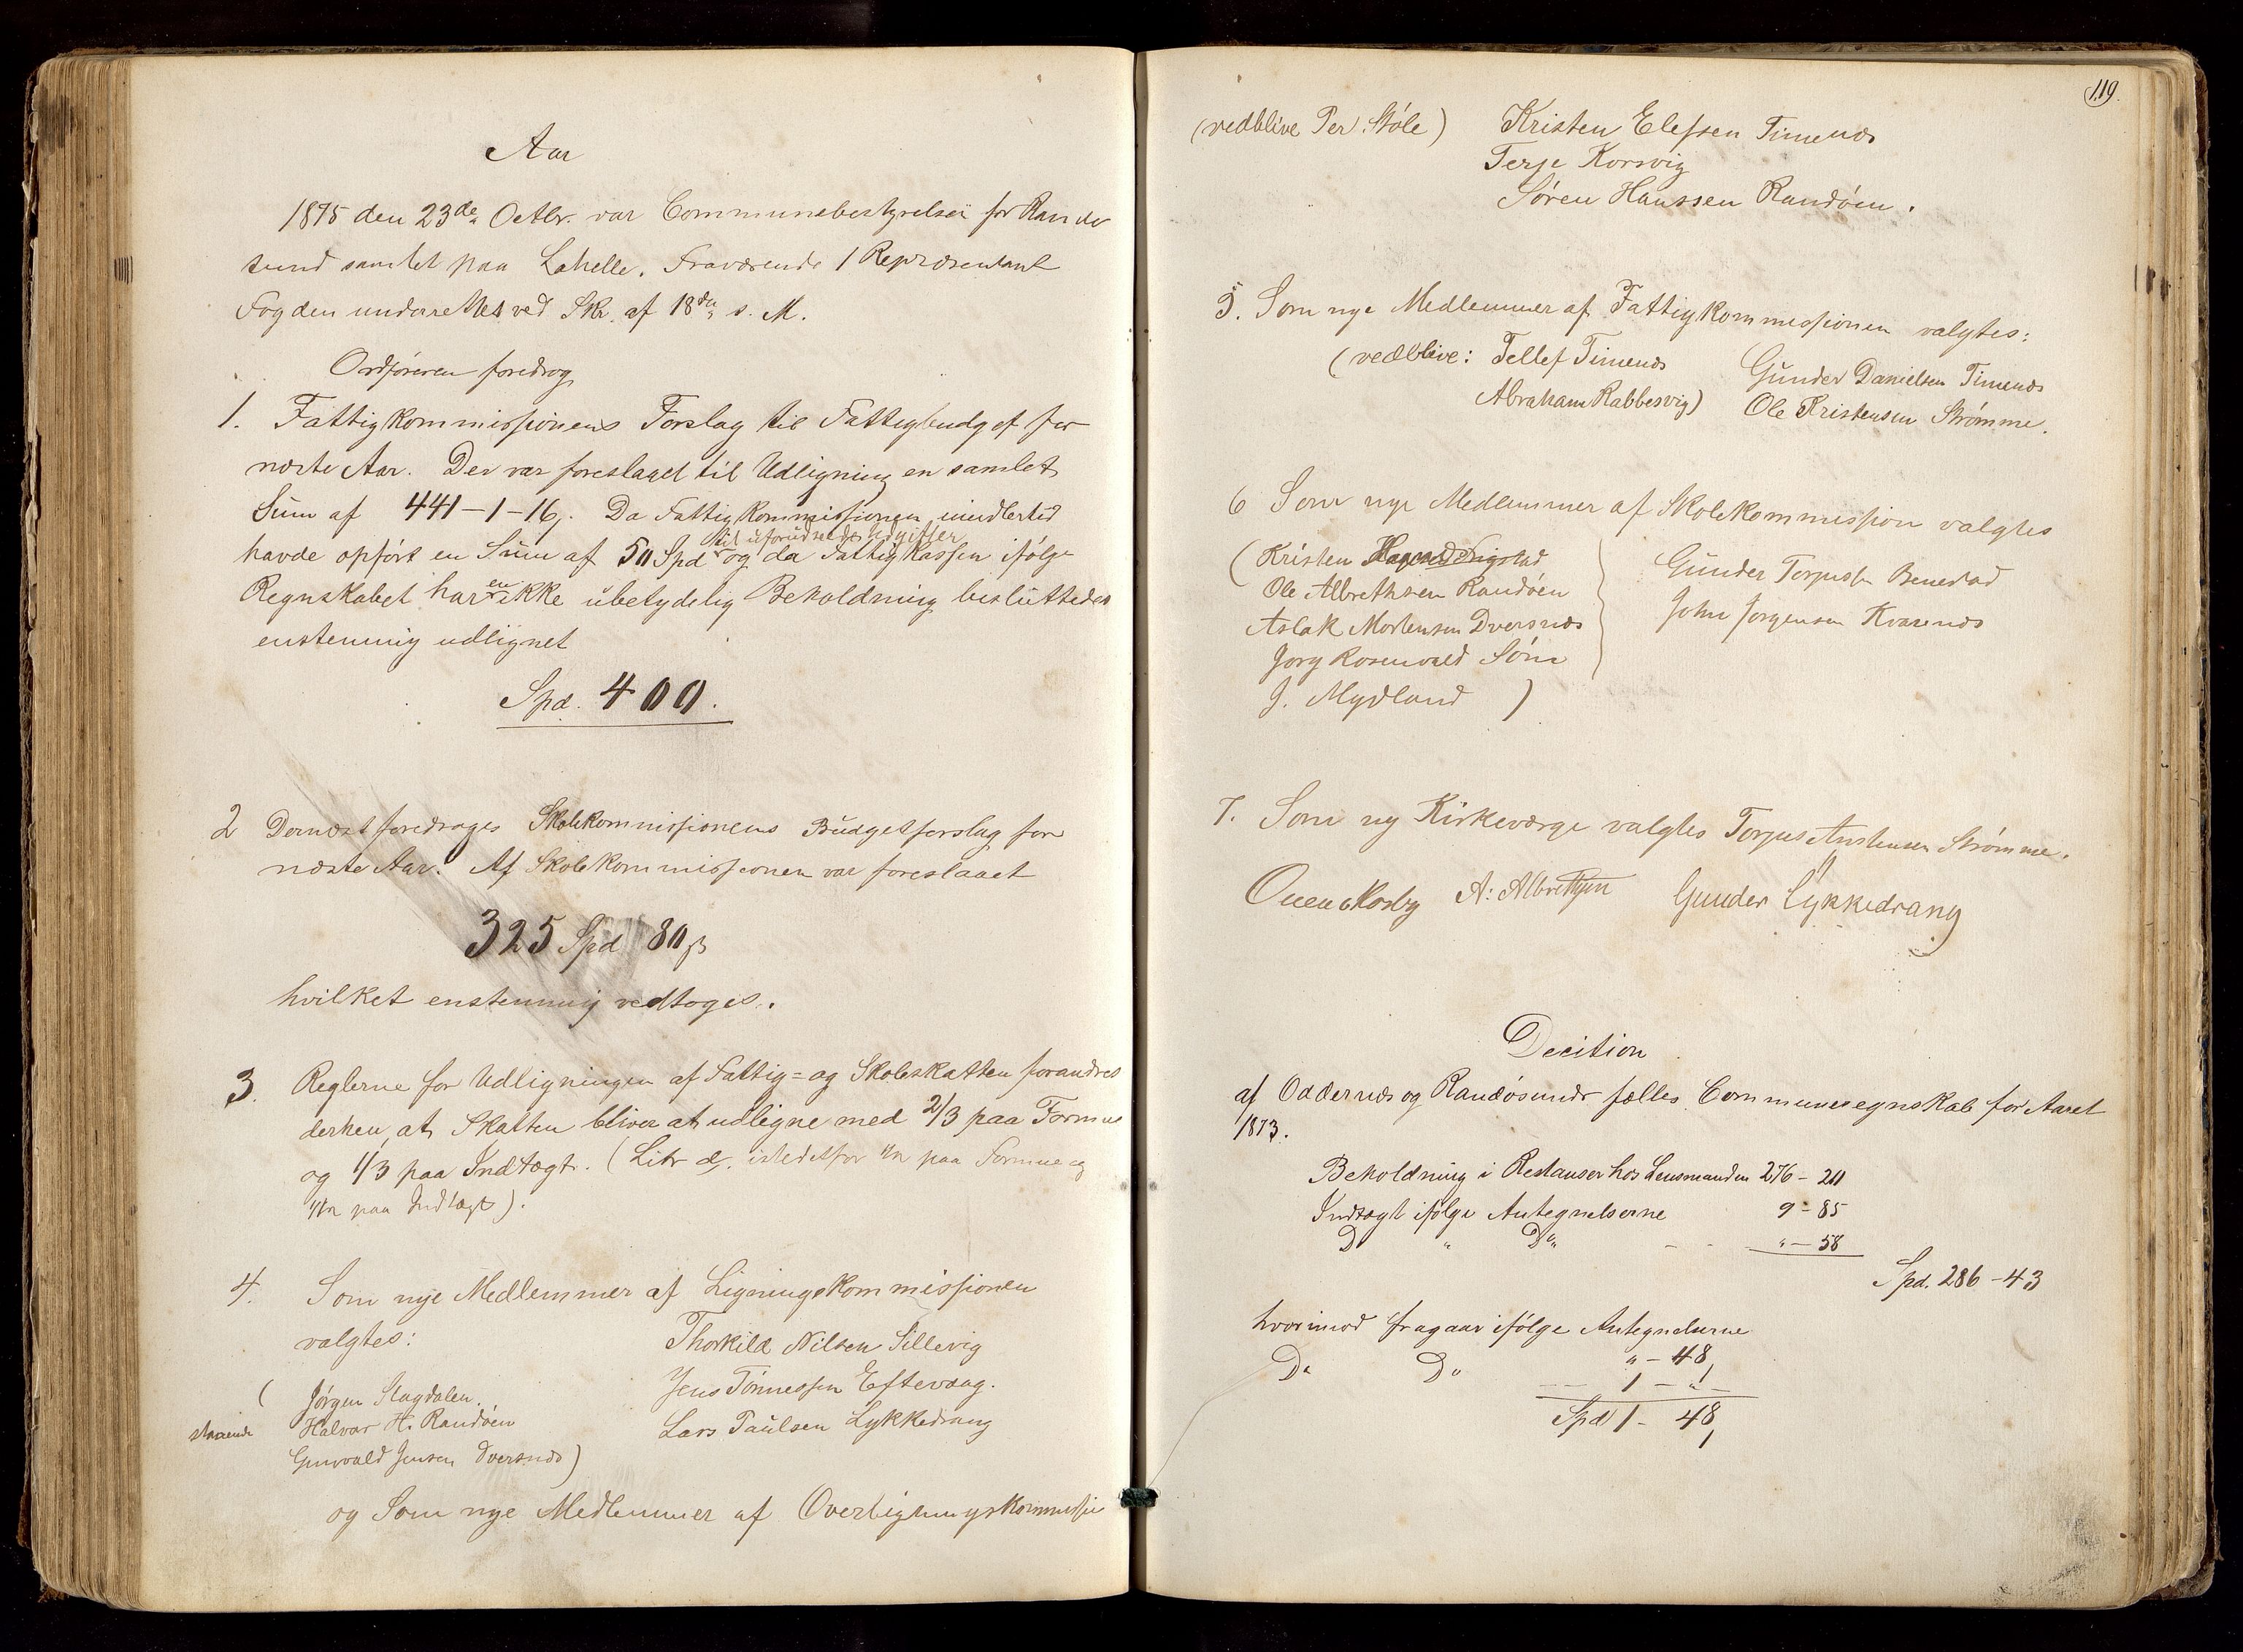 Aar
1875 den 23de Octbr. var Communebestyrelsen for Randø
sund samlet paa Lahelle. Fraværende 1 Repræsentant
Fogden underrettet ved Skr. af 18de s. M.
Ordføreren foredrog
1. Fattigkommissionens Forslag til Fattigbudget for
næste Aar. Der var foreslaaet til Udligning en samlet
Sum af 441-1-16. Da Fattigkommissionen imidlertid
til uforudseede Udgifter
havde opført en Sum af 50 Spd og da Fattigkassen ifølge
Regnskabet har en ikke ubetydelig Beholdning besluttedes
enstemmig udlignet
Spd. 400.
2 Dernæst foredroges Skolekommissionens Budgetforslag for
næste Aar. Af Skolekommissionen var foreslaaet
325 Spd 80 ß
hvilket enstemmig vedtoges.
3. Reglerne for Udligningen af Fattig= og Skoleskatten forandres
derhen, at Skatten bliver at udligne med 2/3 paa Formue
og 1/3 paa Indtægt. (Litr d. istedetfor paa Formue og
paa Indtægt).
4. Som nye Medlemmer af Ligningskommissionen
valgtes: Thorkild Nilsen Sillevig
( Jørgen Slagdalen. Jens Tønnessen Eftevaag.
staaende Halvor H. Randøen Lars Paulsen Lykkedrang
Gunvald Jensen Dversnæs)
og Som nye Medlemmer af Overligningskommissio
119.
(vedblive Per Støle) Kristen Elefsen Timenæs
Terje Korsvig
Søren Hanssen Randøen.
5. Som nye Medlemmer af Fattigkommissionen valgtes:
(vedblive: Tellef Timenæs Gunder Danielsen Timenæs
Abraham Rabbesvig) Ole Kristensen Strømme.
6 Som nye Medlemmer af Skolekommission valgtes
(Kristen Gunder Torjussen Benestad
Ole Albrethsen Randøen John Jørgensen Kvarenæs
Aslak Mortensen Dversnæs
Jørg Rosenvold Søm
J. Mydland )
7. Som ny Kirkeværge valgtes Torjus Anstensen Strømme.
Ouen Kosby A. Albrethsen Gunder Lykkedrang
Decition
af Oddernæs og Randøsunds fælles Communeregnskab for Aaret
1873.
Beholdning i Restanser hos Lensmanden 276 - 20
Indtægt ifølge Antegnelserne 9 - 85
Do " Do " - 58
Spd. 286 - 43
hvorimod fragaar ifølge Antegnelserne
" - 48
Do Do 1 - " -
Spd 1 - 48